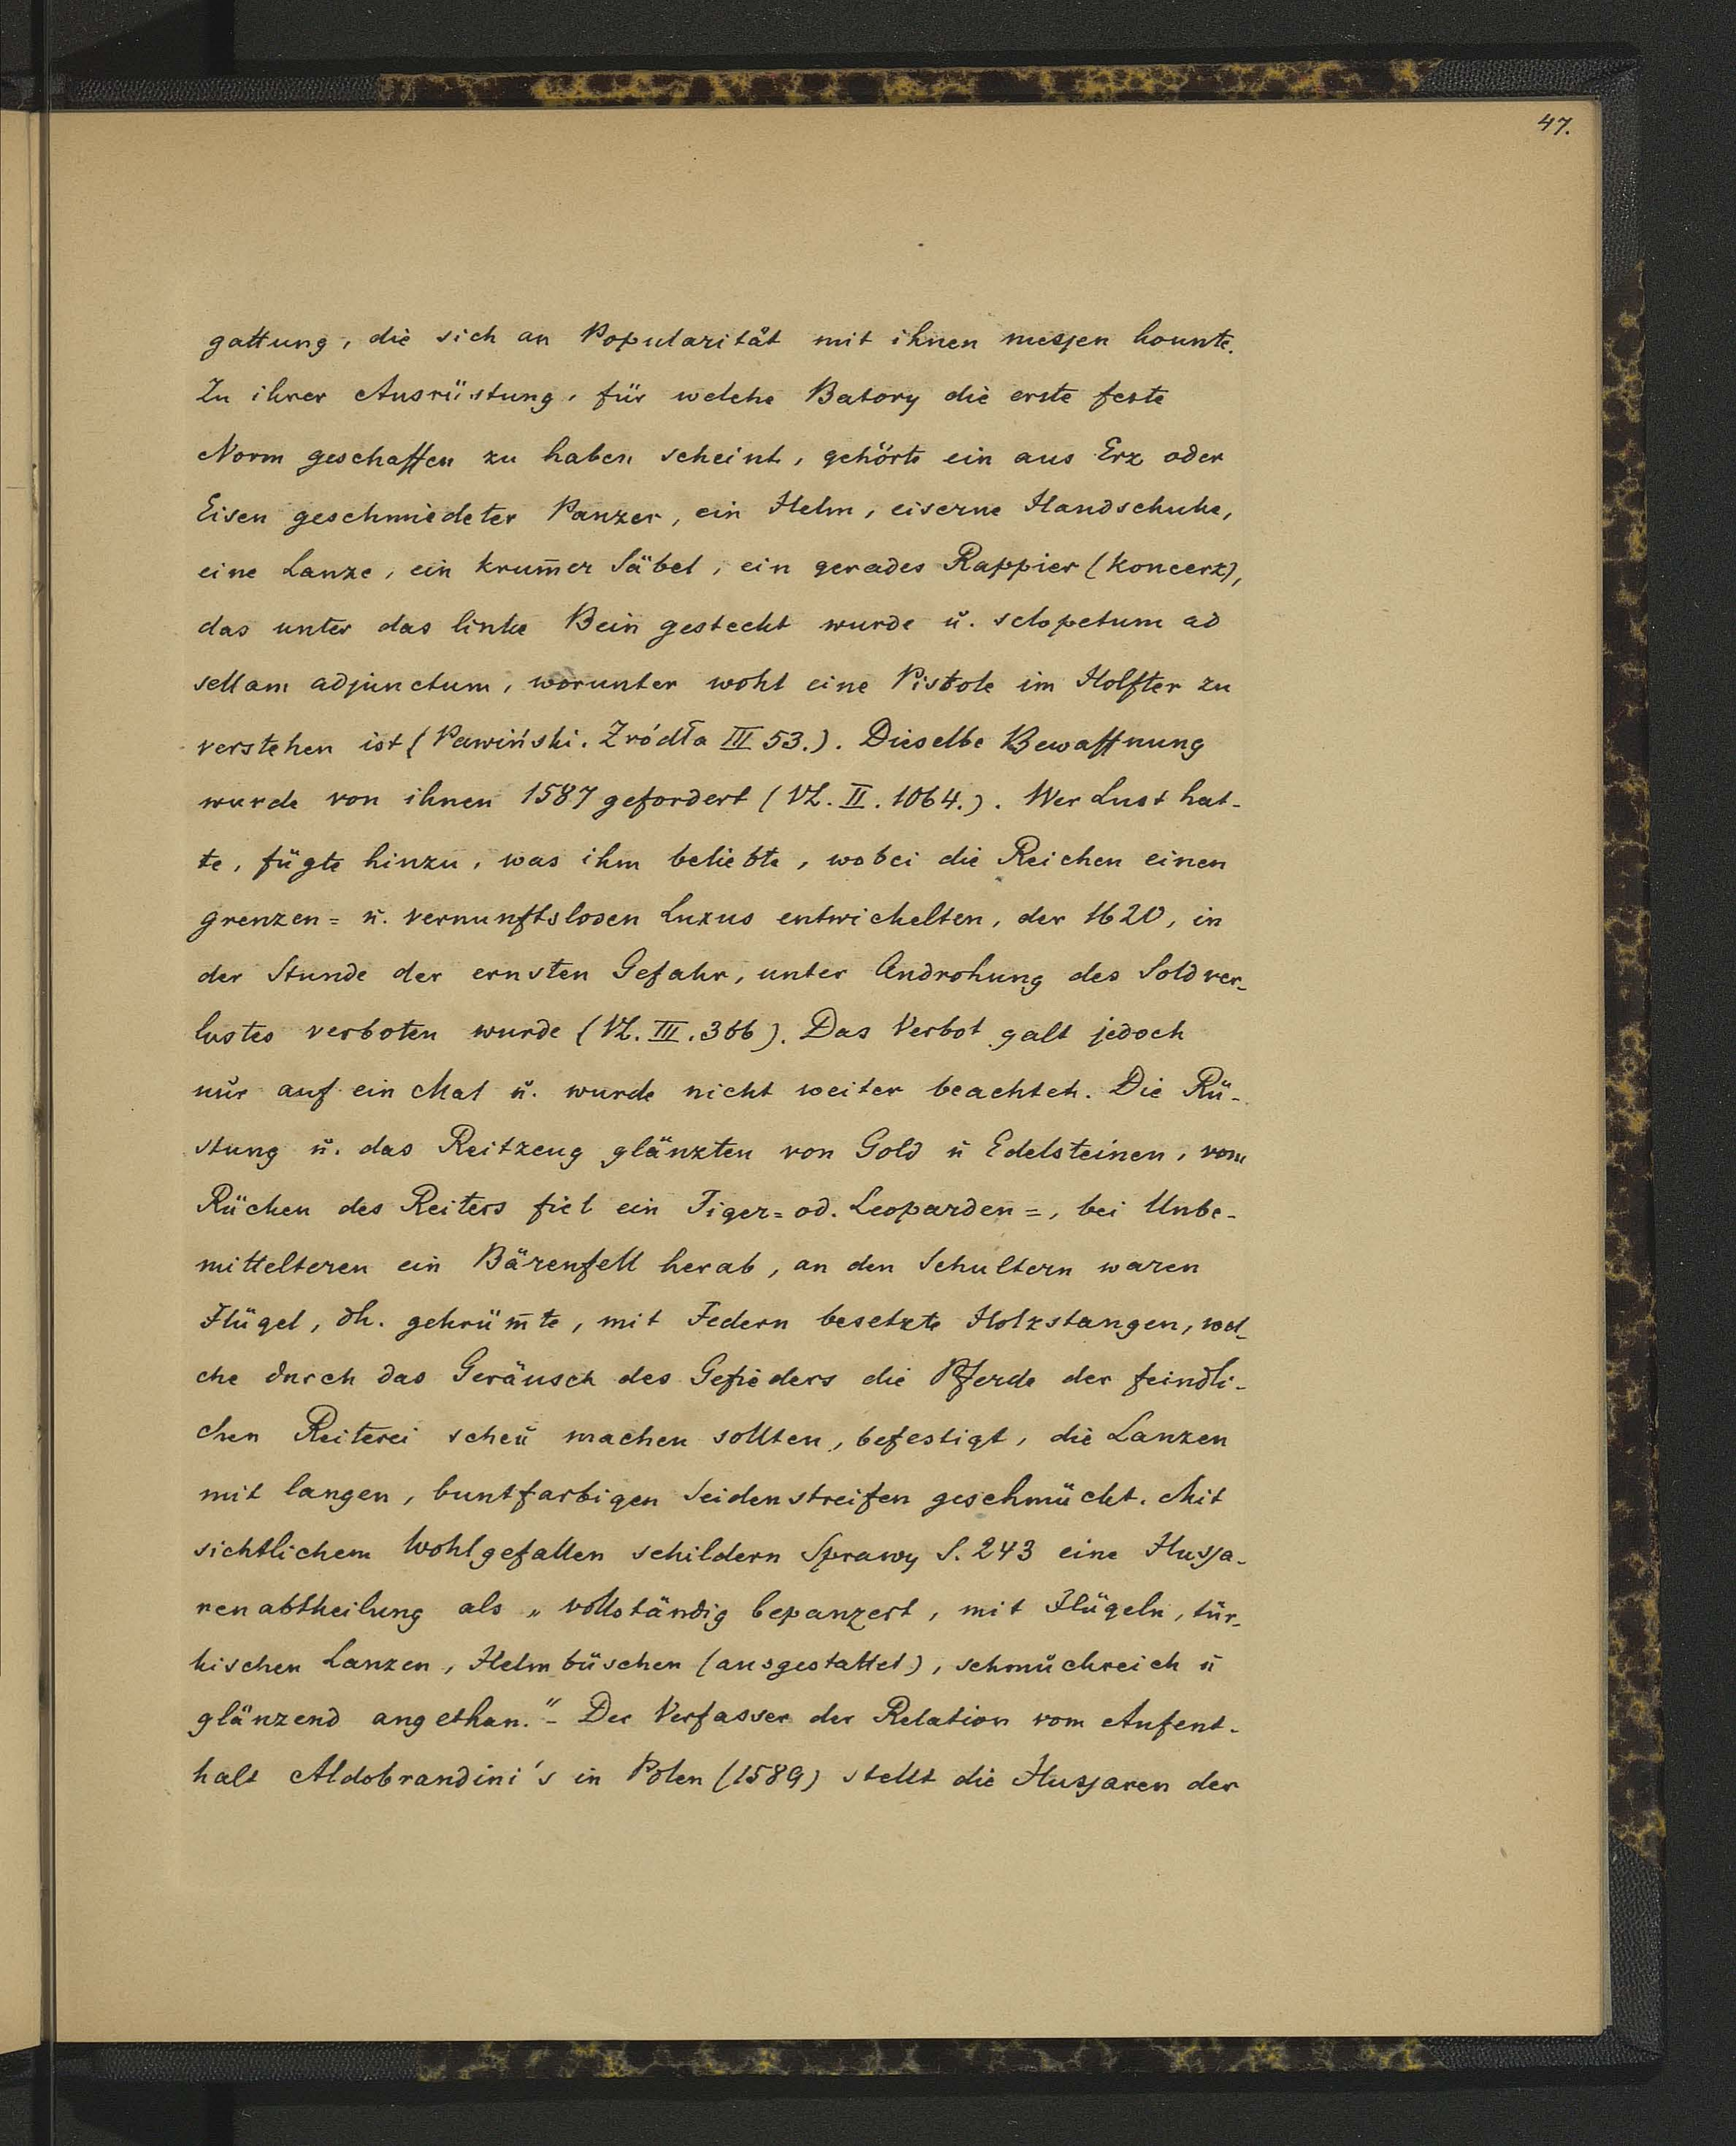 47.
gattung, die sich an Popularität mit ihnen messen konnte.
Zu ihrer Ausrüstung, für welche Batory die erste feste
Norm geschaffen zu haben scheint, gehörte ein aus Erz oder
Eisen geschmiedeter Panzer, ein Helm, eiserne Handschuhe,
eine Lanze, ein krum̅er Säbel, ein gerades Rappier (koncerz),
das unter das linke Bein gesteckt wurde u. sclopetum ad
sellam adjunctum, worunter wohl eine Pistole im Holfter zu
verstehen ist (Pawiński. Zródła III 53.). Dieselbe Bewaffnung
wurde von ihnen 1587 gefordert (VL. II. 1064.). Wer Lust hat-
te, fügte hinzu, was ihm beliebte, wobei die Reichen einen
grenzen= u. vernunftslosen Luxus entwickelten, der 1620, in
der Stunde der ernsten Gefahr, unter Androhung des Soldver-
lustes verboten wurde (VL. III. 366). Das Verbot galt jedoch
nur auf ein Mal u. wurde nicht weiter beachtet. Die Rü-
stung u. das Reitzeug glänzten von Gold u Edelsteinen, vom
Rücken des Reiters fiel ein Tiger= od. Leoparden=, bei Unbe-
mittelteren ein Bärenfell herab, an den Schultern waren
Flügel, dh. gekrüm̅te, mit Federn besetzte Holzstangen, wel-
che durch das Geräusch des Gefieders die Pferde der feindli-
chen Reiterei scheu machen sollten, befestigt, die Lanzen
mit langen, buntfarbigen Seidenstreifen geschmückt. Mit
sichtlichem Wohlgefallen schildern Sprawy S. 243 eine Hussa-
renabtheilung als „vollständig bepanzert, mit Flügeln, tür-
kischen Lanzen, Helmbüschen (ausgestattet), schmuckreich u
glänzend angethan.“ - Der Verfasser der Relation vom Aufent-
halt Aldobrandini's in Polen (1589) stellt die Hussaren der